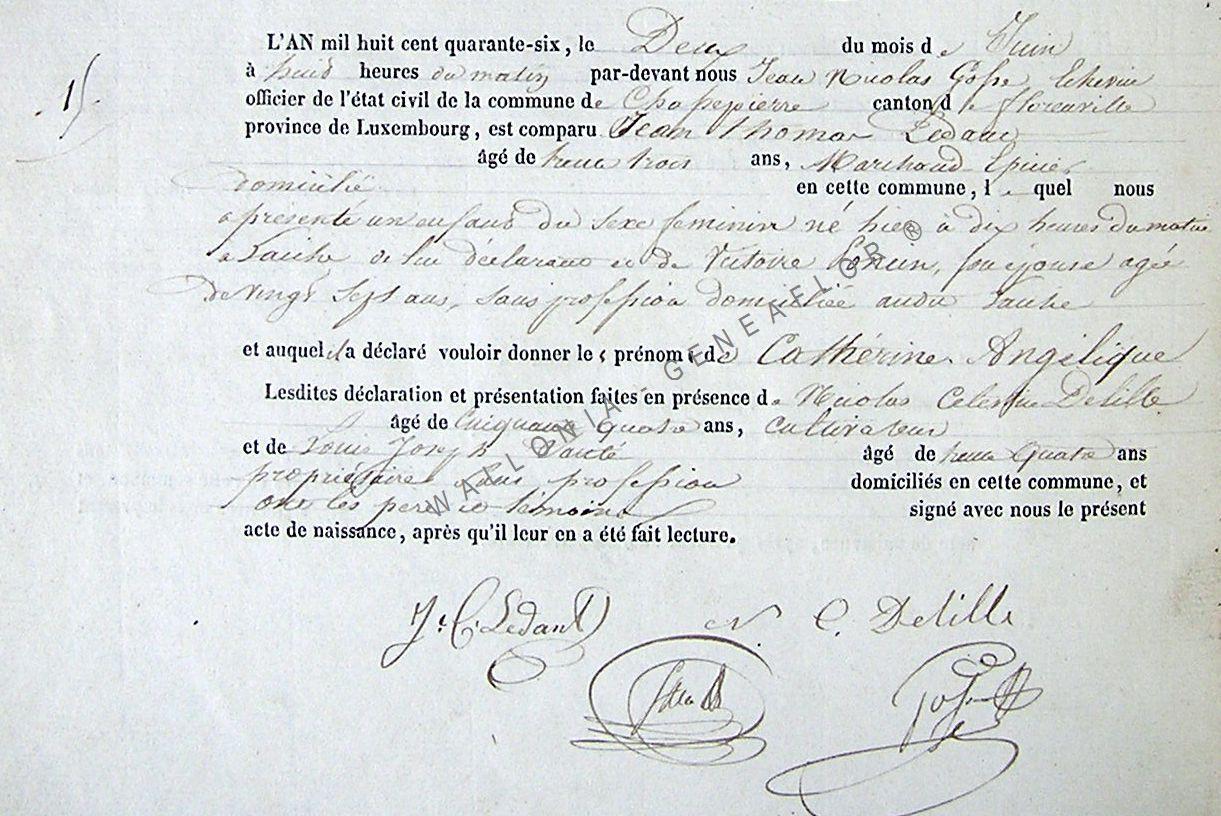 15.
L'AN mil huit cent quarante-six, le Deux du mois de Juin
à huid heures du matin par-devant nous Jean Nicolas Echevin
officier de l'état civil de la commune de Chassepierre canton de florenville
province de Luxembourg, est comparu Jean Thomas Ledant
âgé de trente trois ans, Marchand Epicier
domicilié en cette commune, le quel nous
a presenté un enfant du sexe feminin né hier à dix heures du matin
a Laiche de lui déclarant et de Victoire son épouse agée
De vingt Sept ans, sans profession domiciliée audit Laiche
et auquel il a déclaré vouloir donner les prénoms de Cathérine Angélique
Lesdites déclaration et présentation faites en présence de Nicolas Celestin Delille
âgé de Cinquante quatre ans, cultivateur
et de Louis Joseph âgé de trente Quatre ans
propriétaire sans profession domiciliés en cette commune, et
ont les père et témoins signé avec nous le présent
acte de naissance, après qu'il leur en a été fait lecture.
Ledant N. C. Delille
WALLONIA GENEAFLOR ®